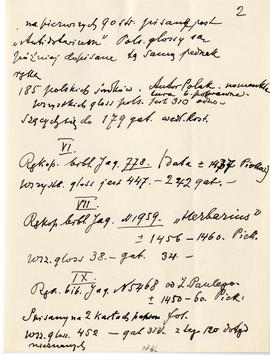 2
na pierwszych 90 str. pisany jest
"Antidotarium". Pols. glossy są
później dopisane tą samą jednak
ręką
185 polskich środków. Autor Polak.
Wszystkich gloss pols. jest 310 odno-
szących się do 179 gat. wedł. Rost.
VI
Rękop. bibl. Jag. 778. (data ± 1437 Piekos.)
Wszystk. gloss jest 447. - 242 gat. -
VII
Rękop. bibl. Jag. N 1959. "Herbarius"
± 1456 - 1460. Piek.
Wsz. gloss 38. - gat. 34. -
IX
Ręk. bib. Jag. N 5468 od Ż. Paulego.
± 1450-60. Piek.
Spisany na 2 kartach papieru fol.
Wsz. gloss 452 - gat 318. z tego 120 dotąd
nieznanych